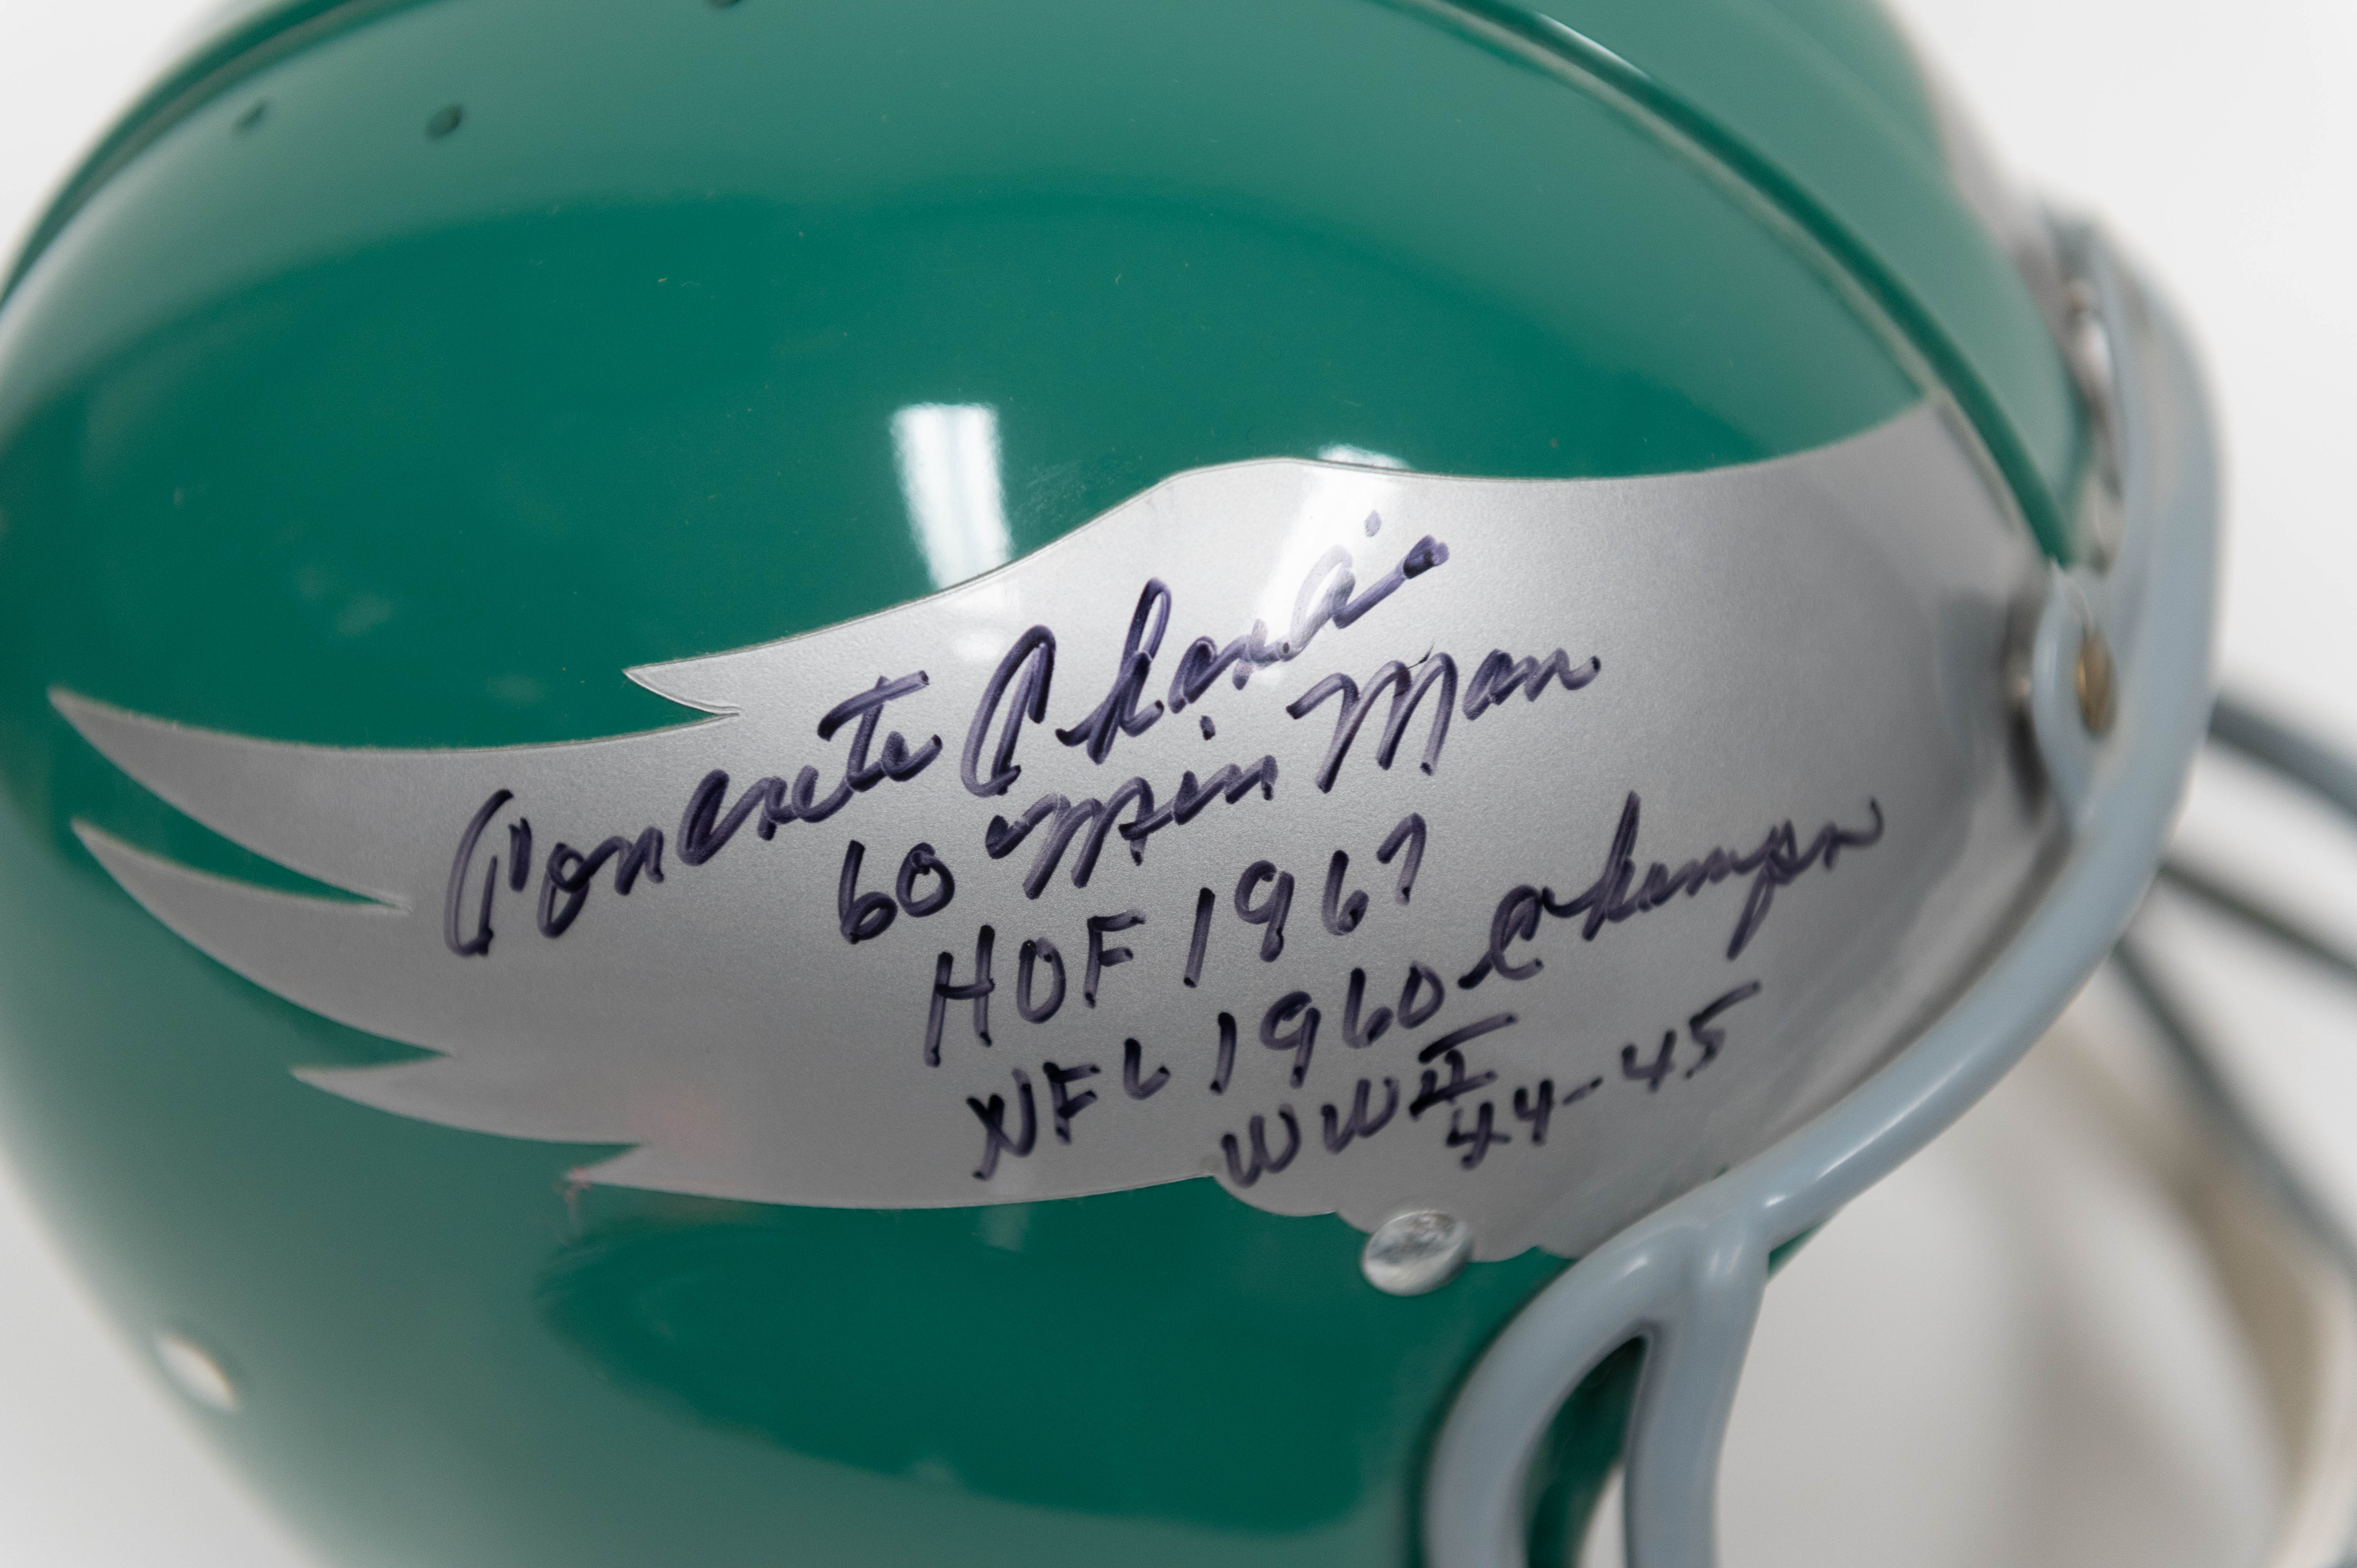 Concrete Charlie
60 Min Man
HOF 1967
NFL 1960 Champs
WW II
44-45